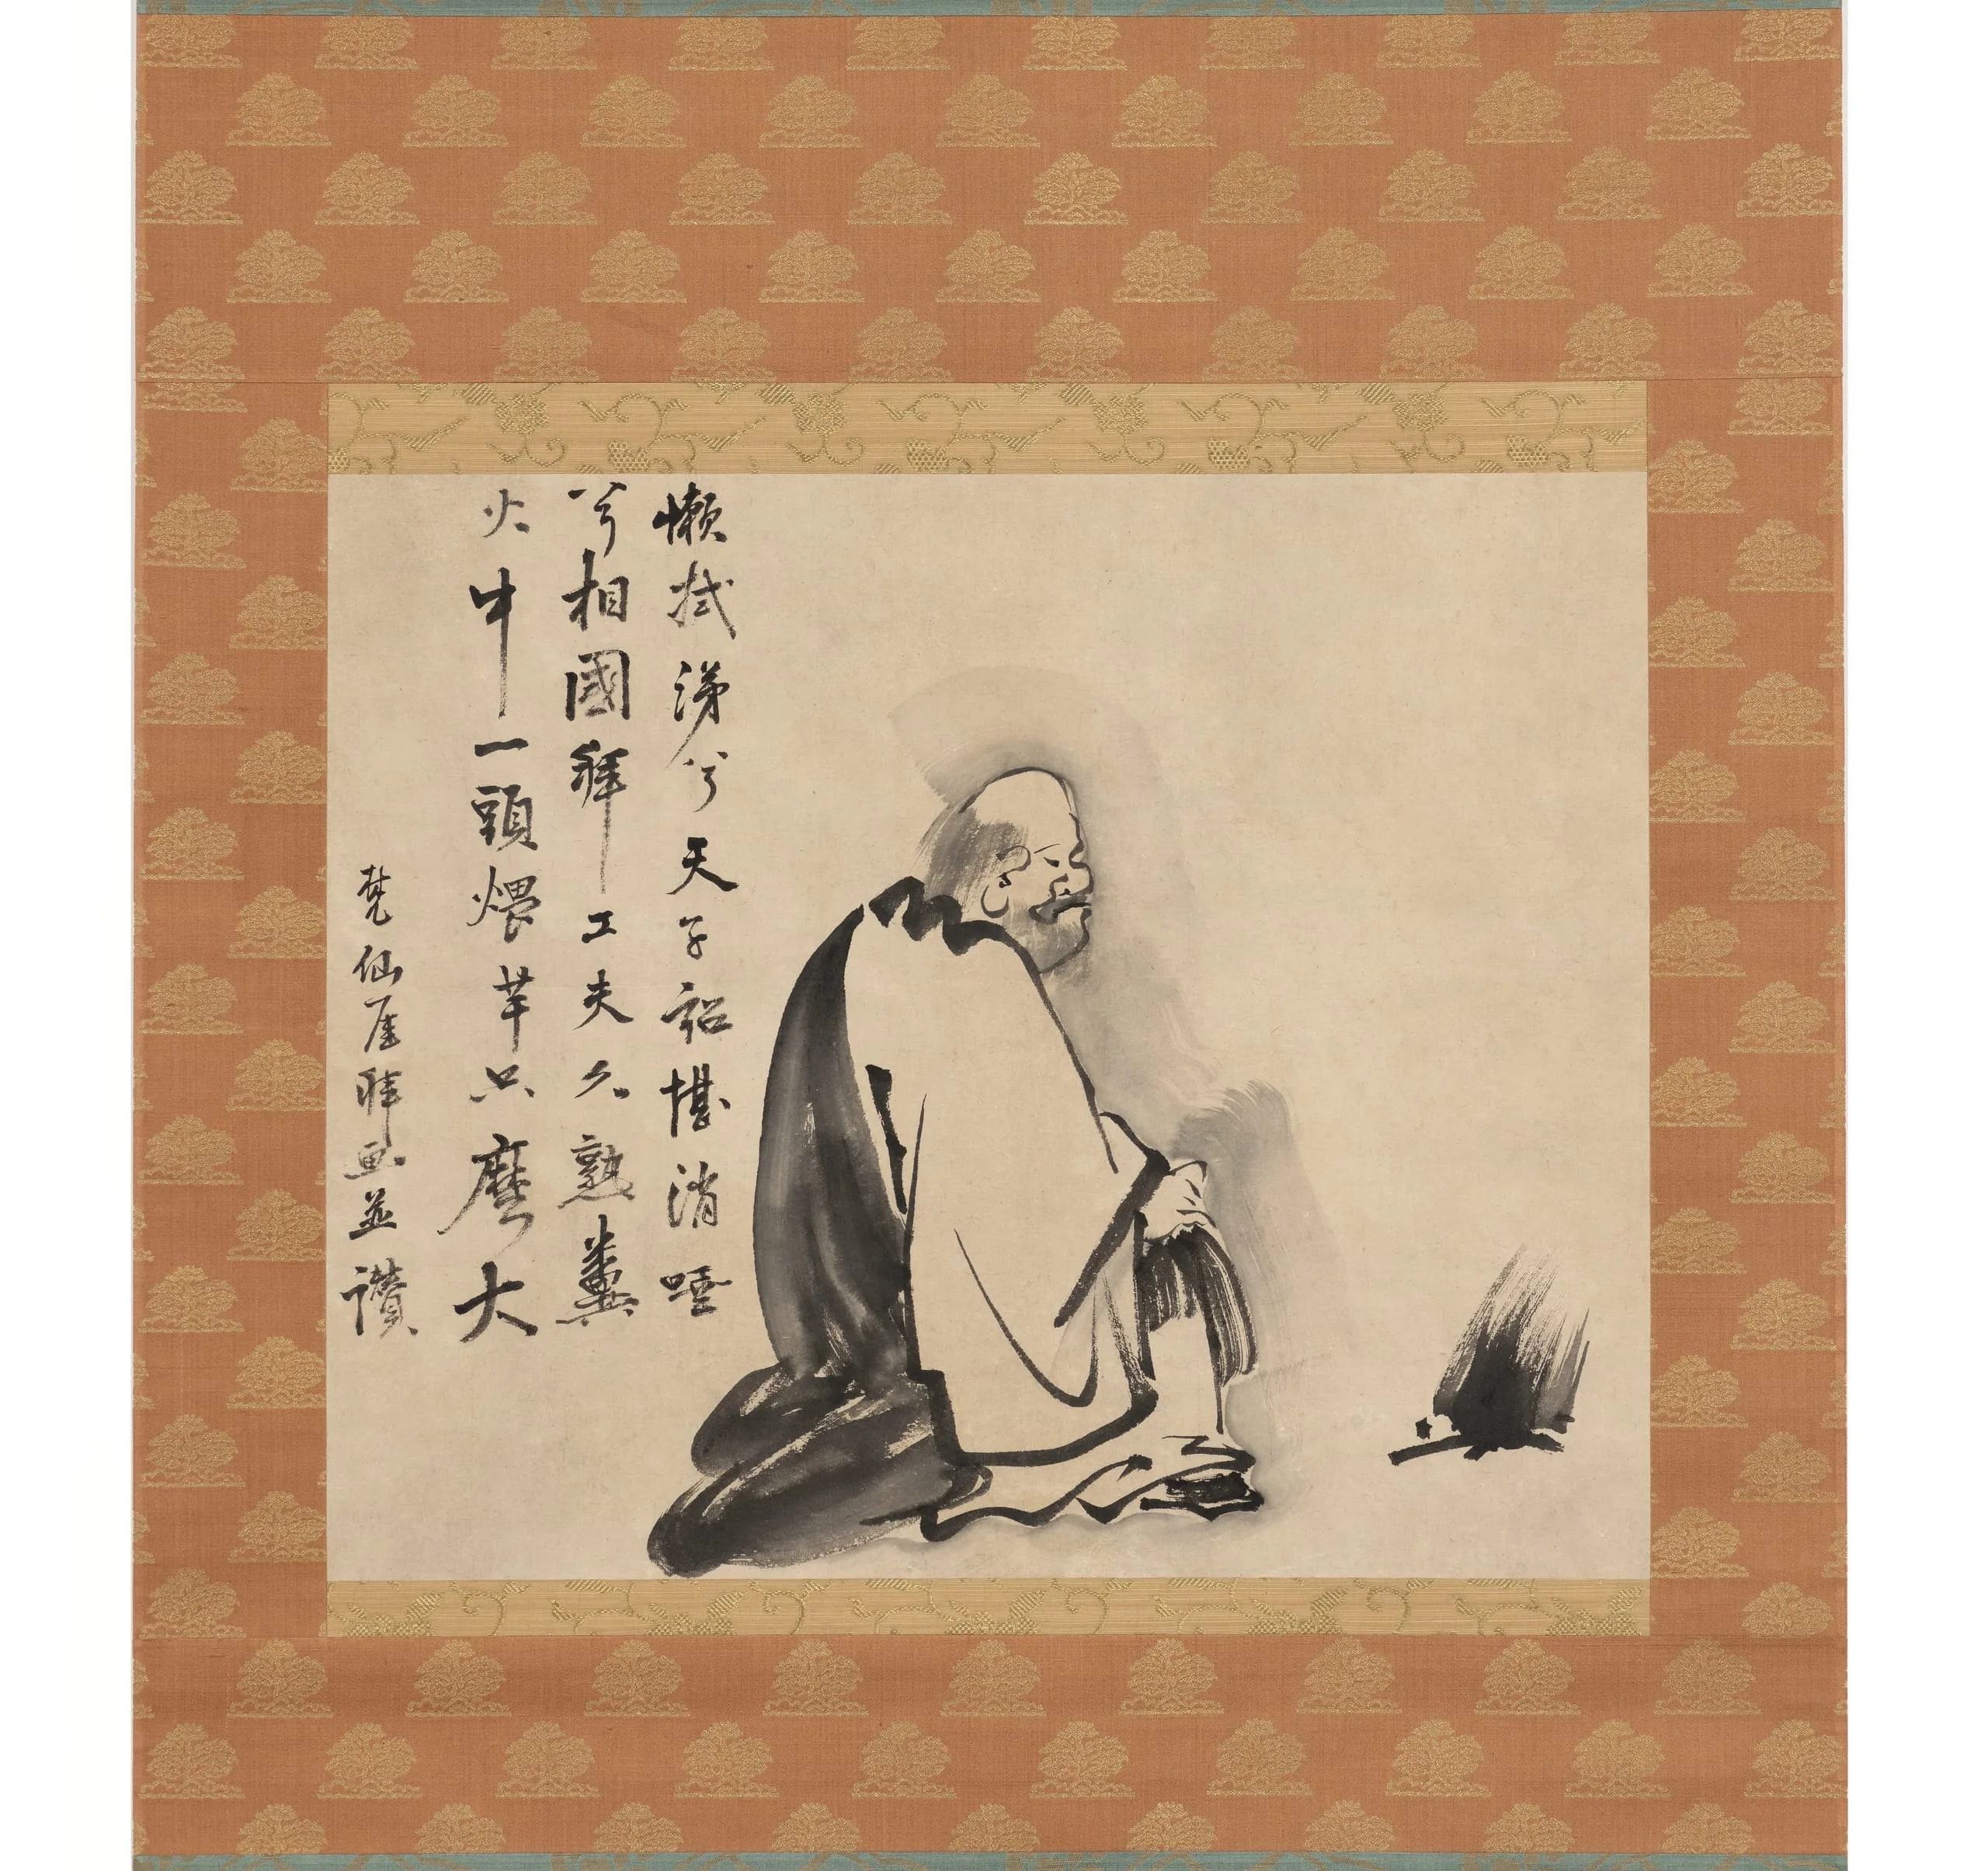 懶拭涕兮天子詔堪消唾
兮相國拜工夫久熟糞
火中一頭煨芋只麼大
梵仙厓拜画並讃